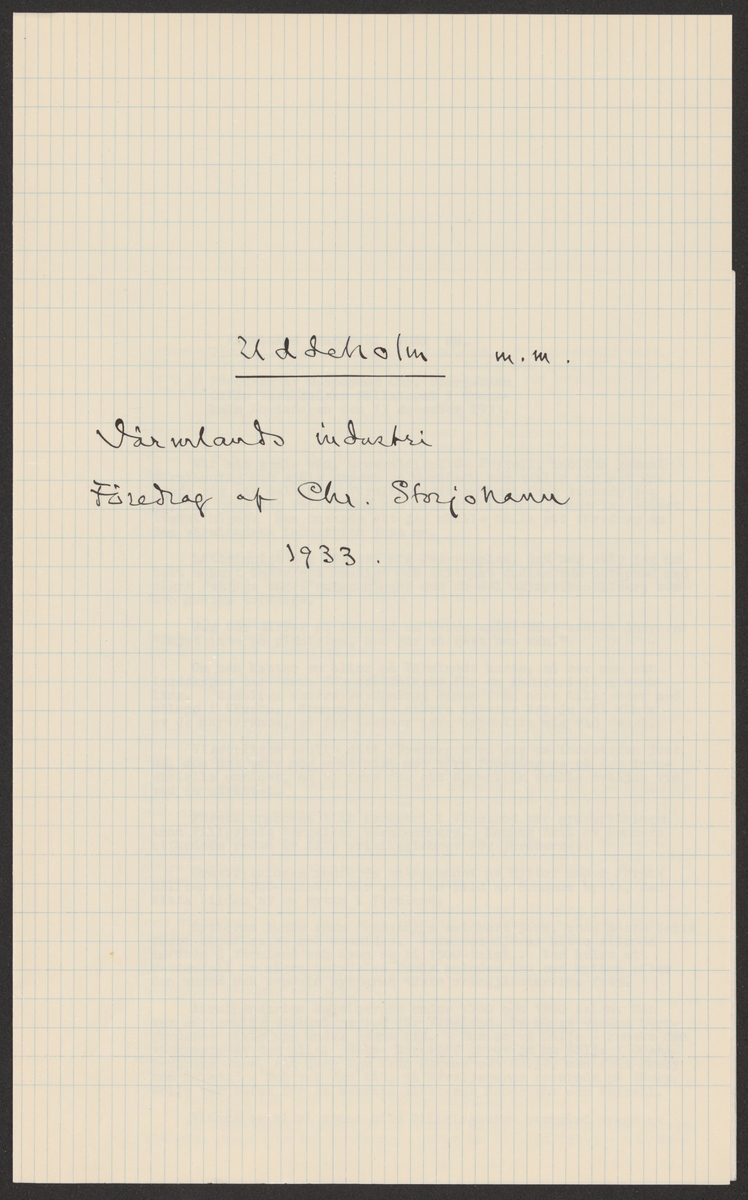 Uddeholm m.m.
Värmlands industri
Föredrag af Chr. Storjohann
1933.